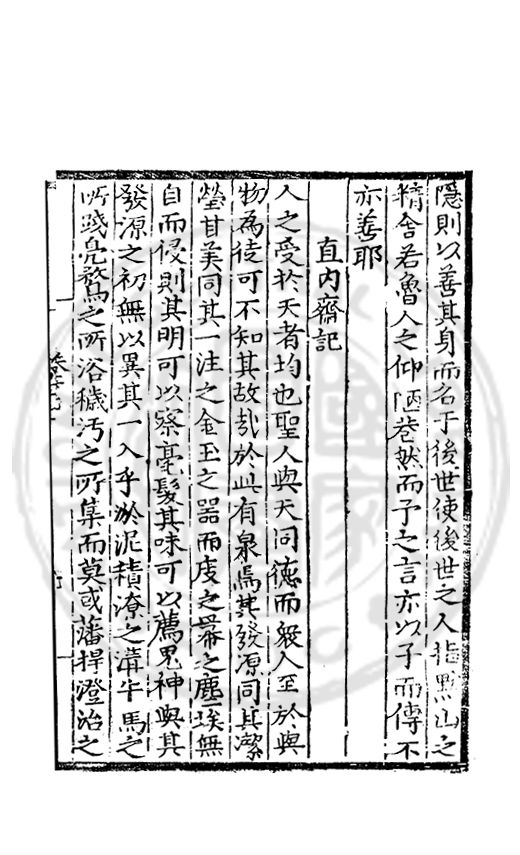 隱則以善其身而名于後世使後世之人指點山之
精舍若魯人之仰陋巷然而予之言亦以子而傳不
亦善耶
直内齋記
人之受於天者均也聖人與天同德而衆人至於與
物為徒可不知其故哉於此有泉焉其發源同其潔
瑩甘美同其一注之金玉之器而庋之幕之塵埃無
自而侵則其明可以察毫髮其味可以薦鬼神與其
發源之初無以異其一入乎淤泥積潦之溝牛馬之
所踐鳧鶩之所浴穢汚之所集而莫或藩捍澄治之